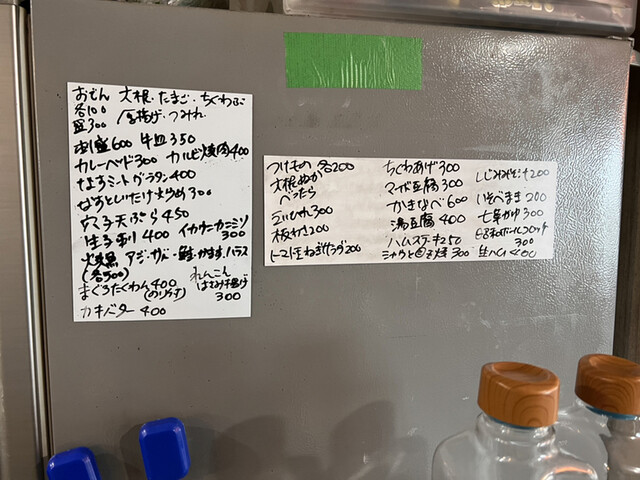 おでん 大根・たまご・ちくわぶ
各100
盛300 厚揚げ・つみれ
刺盛600 牛皿350
カレーヘッド300 カルビ焼肉400
なすミートグラタン400
なすとしいたけ炒め300
穴子天ぷら450
生子刺り400 イカゲーカニミソ
300
焼魚 アジ・サバ・鮭・かます・ハラス
(各500)
まぐろたくわん400
(のり付)
れんこん
はさみ揚げ
300
カキバター 400
つけもの 各200
大根ぬか
べったら
えいひれ300
板わさ200
トマト玉ねぎサラダ200
ちくわあげ300
マーボ豆腐300
かきなべ600
湯豆腐400
ハムステーキ250
300
しじみみそ汁200
いそべまき200
七草かゆ300
300
生ハム400